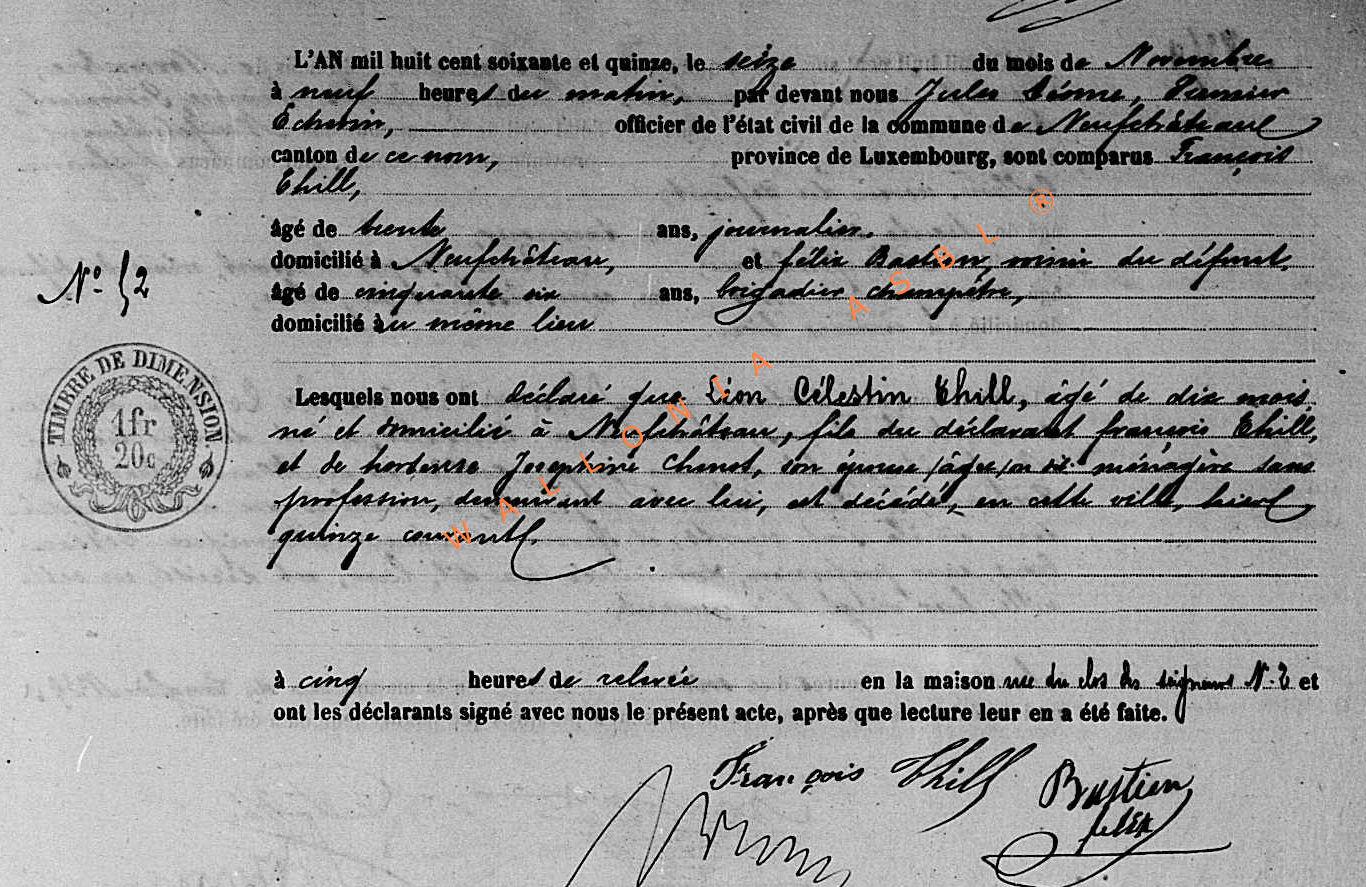 L'AN mil huit cent soixante et quinze, le seize du mois de Novembre
à neuf heures du matin, par devant nous Jules Premier
Echevin, officier de l'état civil de la commune de Neufchâteau
canton de ce nom, province de Luxembourg, sont comparus François
Thill,
âgé de trente ans, journalier,
domicilié à Neufchâteau, et félix Bastien, voisin du défunt,
N° 52
âgé de cinquante six ans, brigadier champêtre,
domicilié au même lieu
TIMBRE DE DIMENSION
1fr
20c
Lesquels nous ont déclaré que Léon Célestin Thill, âgé de dix mois
né et domicilié à Neufchâteau, fils du déclarant françois Thill,
et de hortense Joséphine Chenot, son épouse ménagère sans
profession, demeurant avec lui, est décédé, en cette ville, hier
quinze courant.
à cinq heures de relevée en la maison rue du clos des seigneurs N. 2 et
ont les déclarants signé avec nous le présent acte, après que lecture leur en a été faite.
François Thill Bastien
félix
WALLONIA ASBL ®